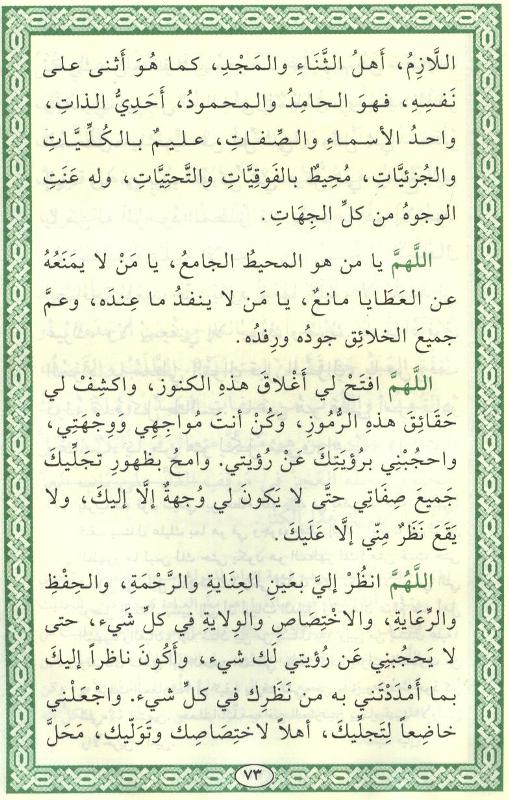 اللَّازِمُ، أَهلُ الثَّنَاءِ والمَجْدِ، كما هُوَ أَثنى على
نَفسِهِ، فهوَ الحامِدُ والمحمودُ، أَحَدِيُّ الذاتِ،
واحدُ الأسماءِ والصِّفاتِ، عليمٌ بالكُلِّيَّاتِ
والجُزئيَّاتِ، مُحِيطٌ بالفَوقِيَّاتِ والتَّحتِيَّاتِ، وله عَنَتِ
الوجوهُ من كلِّ الجِهَاتِ.
اللَّهمَّ يا من هو المحيطُ الجامعُ، يا مَنْ لا يمنَعُهُ
عن العَطَايا مانعٌ، يا مَن لا ينفدُ ما عِندَه، وعمَّ
جميع الخلائق جودُه ورِفدُه.
اللَّهمَّ افتَح لي أَغْلاقَ هذهِ الكنوز، واكشِفْ لي
حَقَائِقَ هذهِ الرُّمُوزِ، وَكُنْ أنتَ مواجهي ووِجهَتِي،
واحجُبْنِي برُؤيَتِكَ عَنْ رُؤيتي. وامحُ بظهور تجلِّيكَ
جَمِيعَ صِفَاتِي حتَّى لا يكون لي وُجهةٌ إلَّا إليكَ، ولا
يَقَعَ نَظَرٌ مِنّي إلَّا عَلَيكَ.
اللَّهُمَّ انظُرْ إليَّ بعَينِ العِنَايةِ والرَّحْمَةِ، والحِفْظِ
والرِّعَايةِ، والاخْتِصَاصِ والوِلايةِ في كلِّ شَيء، حتى
لا يَحجُبنِي عَن رُؤيتي لَك شيء، وأَكُونَ ناظراً إليكَ
بما أَمْدَدْتَني به من نَظَرِك في كلِّ شيء. واجْعَلْني
خاضِعاً لتجلِّيكَ، أهلاً لاختِصاصِك وتَوَلّيك، مَحَلَّ
٧٣